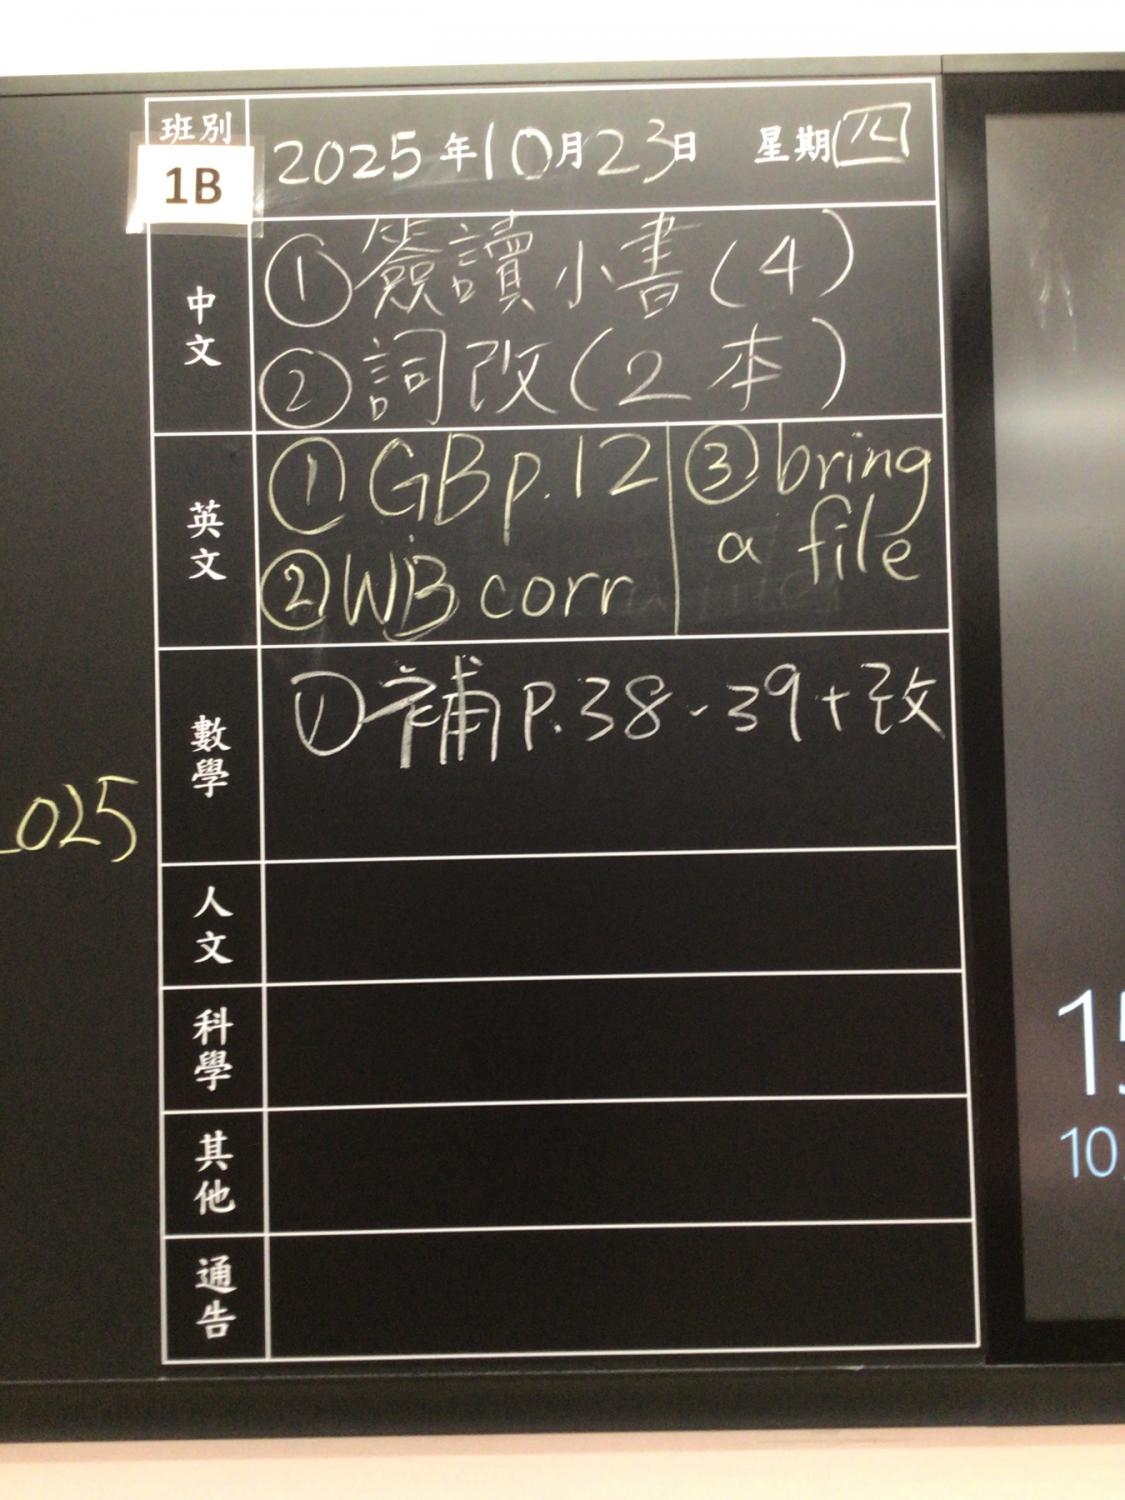 班別
1B
2025年10月23日 星期四
中文
①簽讀小書(4)
②詞改(2本)
英文
①GBp.12
②WB corr
③bring
a file
數學
①補P.38-39+改
025
人文
科學
其他
通告
15
10